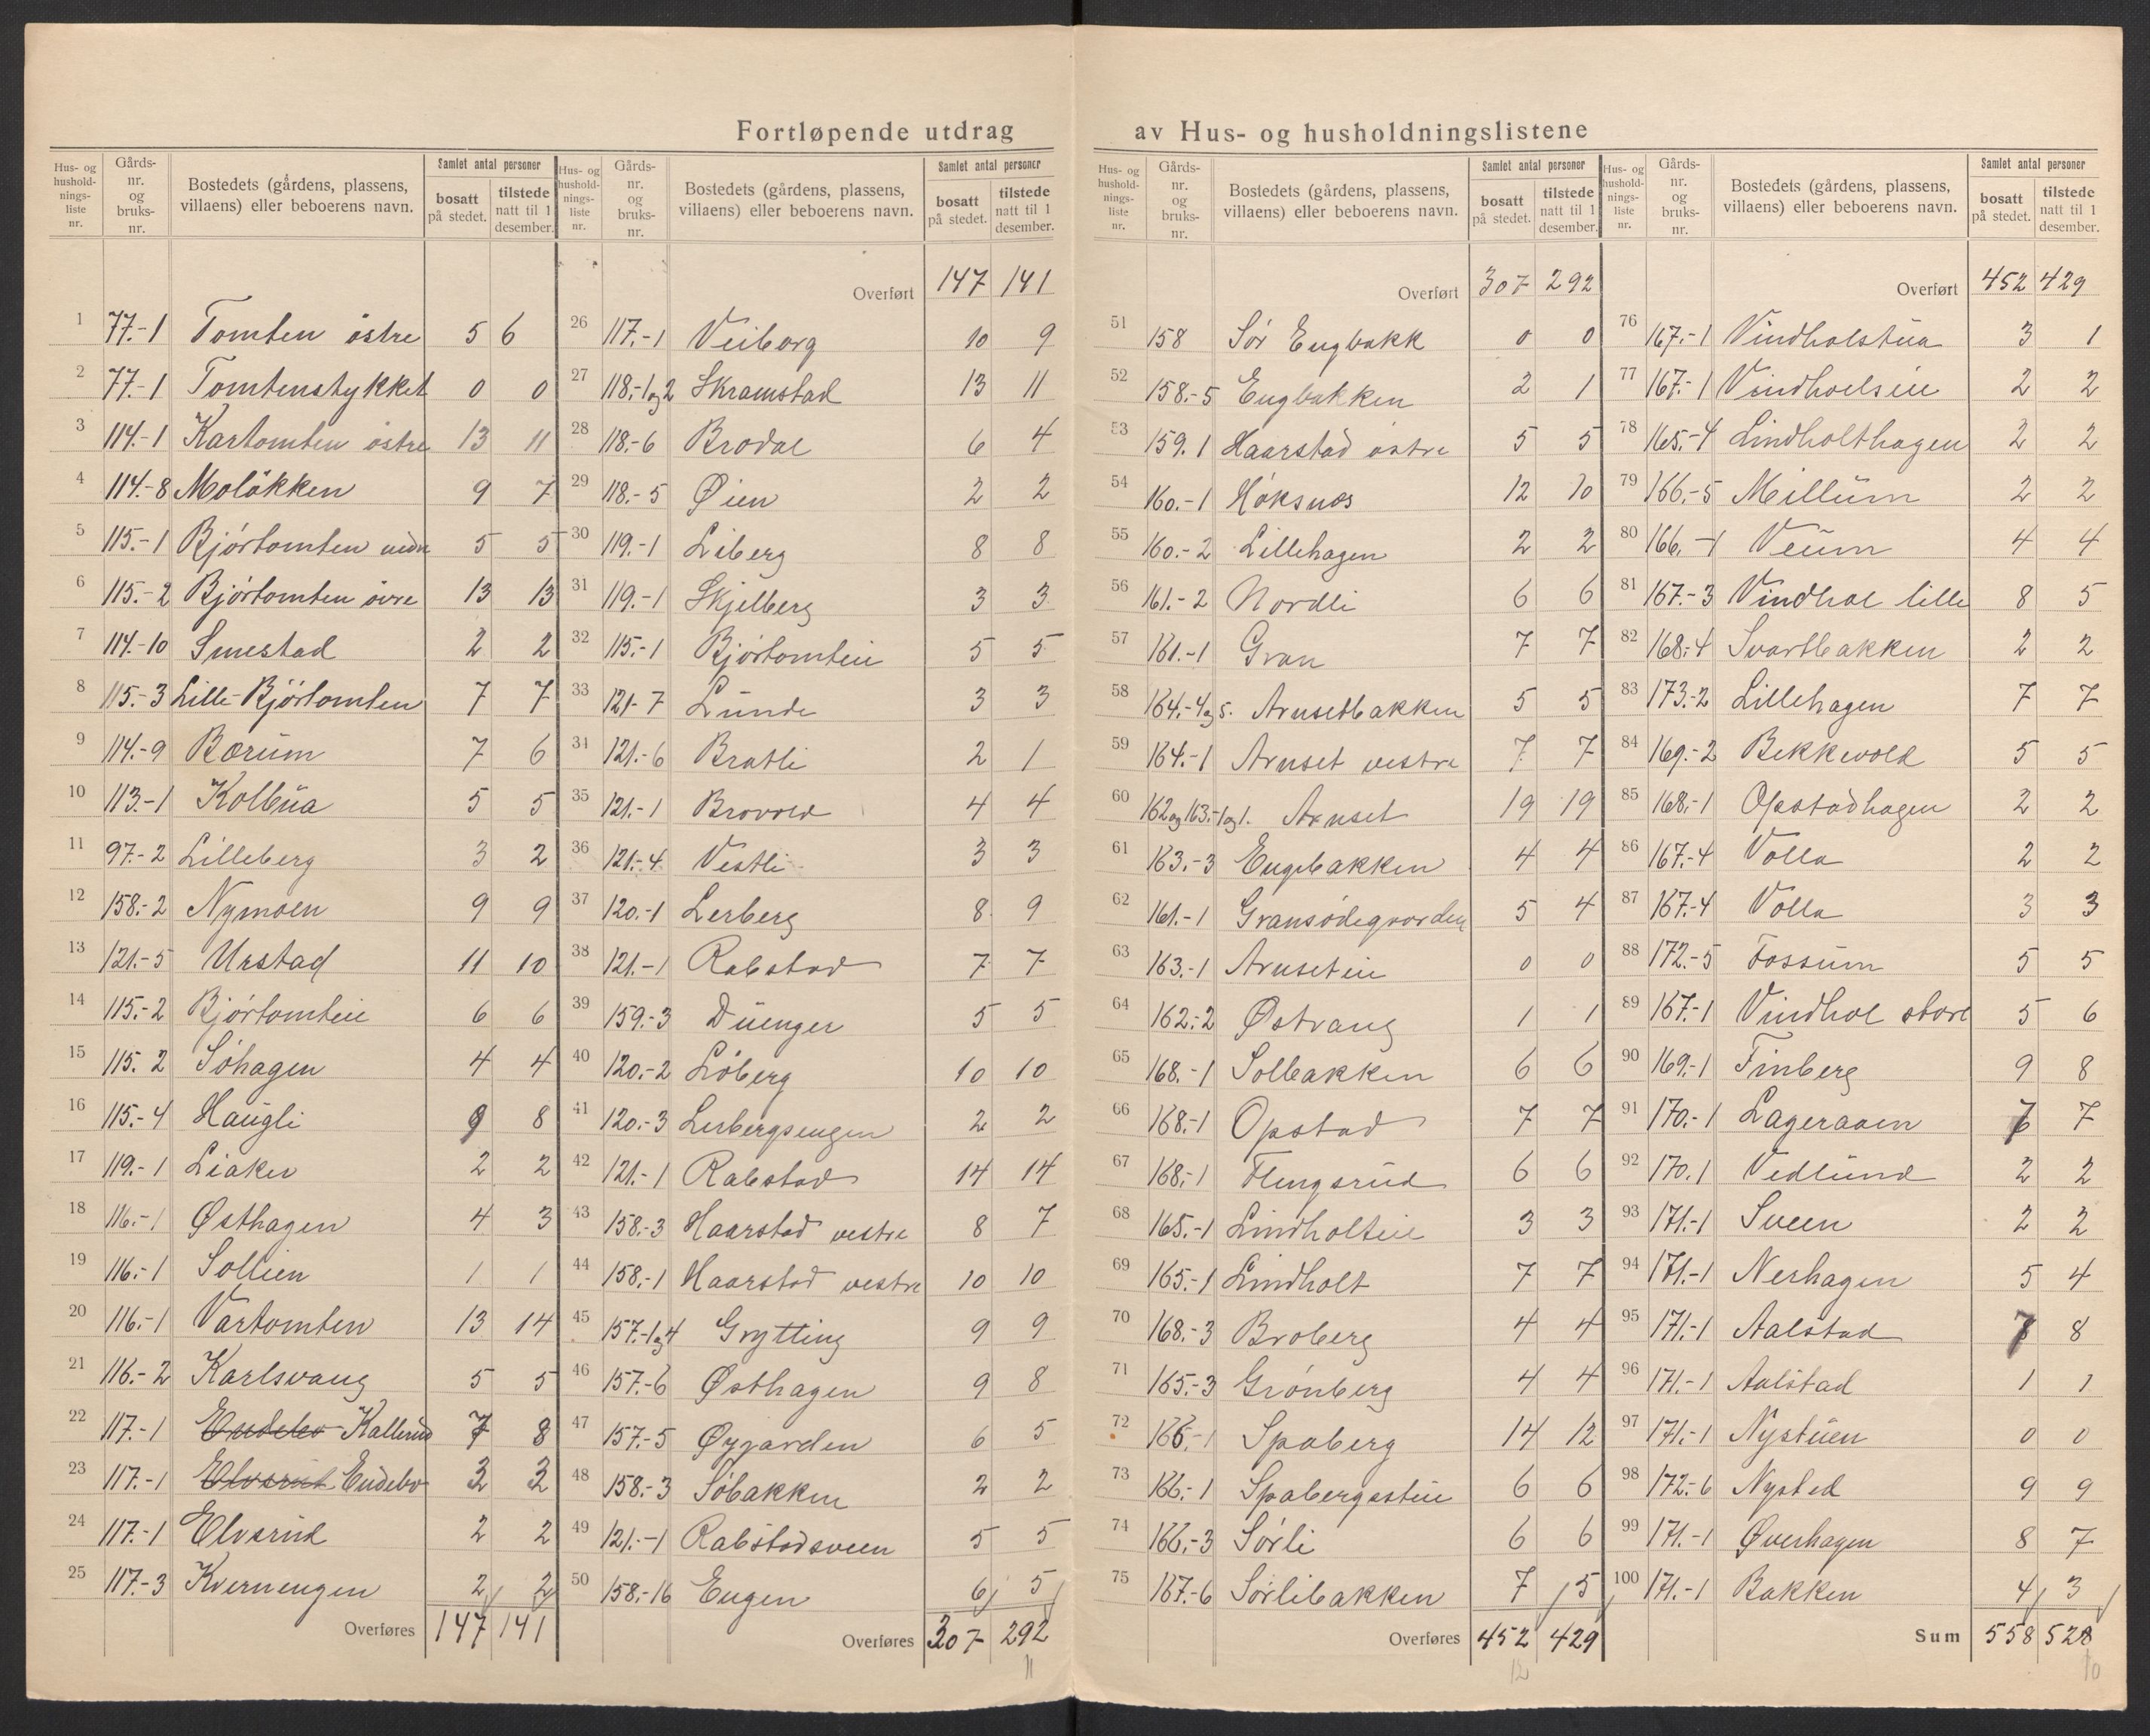 Fortløpende utdrag av Hus- og husholdningslistene
Hus- og husholdnings-liste nr. Gårds-nr. og bruks-nr. Bostedets (gårdens, plassens, villaens) eller beboerens navn. Samlet antal personer bosatt på stedet. tilstede natt til 1 desember.
1 77.-1 Tomten östre 5 6
2 77.-1 Tomtenstykket 0 0
3 114.-1 Kartomten östre 13 11
4 114.-8 Molökken 9 7
5 115.-1 Bjørtomten nedr 5 5
6 115.-2 Bjørtomten övre 13 13
7 114.-10 Smestad 2 2
8 115.-3 Lille-Bjørtomten 7 7
9 114.-9 Bærum 7 6
10 113.-1 Kolbua 5 5
11 97.-2 Lilleberg 3 2
12 158.-2 Nymoen 9 9
13 121.-5 Urstad 11 10
14 115.-2 Bjørtomteie 6 6
15 115. 2 Söhagen 4 4
16 115.-4 Haugli 9 8
17 119.-1 Liaker 2 2
18 116.-1 Østhagen 4 3
19 116.-1 Sollien 1 1
20 116.-1 Vartomten 13 14
21 116.-2 Karlsvang 5 5
22 117.-1 Endebo Kallerud 7 8
23 117.-1 Elvsrud Endebo 3 3
24 117.-1 Elvsrud 2 2
25 117.-3 Kvernengen 2 2
Overføres 147 141
Hus- og husholdnings-liste nr. Gårds-nr. og bruks-nr. Bostedets (gårdens, plassens, villaens) eller beboerens navn. Samlet antal personer bosatt på stedet. tilstede natt til 1 desember.
Overført 147 141
26 117.-1 Veiborg 10 9
27 118.-1og2 Skramstad 13 11
28 118.-6 Brodal 6 4
29 118.-5 Øien 2 2
30 119.-1 Liberg 8 8
31 119.-1 Skjelberg 3 3
32 115.-1 Bjørtomteie 5 5
33 121-7 Lunde 3 3
34 121.-6 Bratli 2 1
35 121.-1 Brovold 4 4
36 121.-4 Vestli 3 3
37 120.-1 Lerberg 8 9
38 121.-1 Rabstad 7 7
39 159.-3 Duenger 5 5
40 120.-2 Löberg 10 10
41 120.-3 Lerbergsengen 2 2
42 121.-1 Rabstad 14 14
43 158.-3 Haarstad vestre 8 7
44 158.-1 Haarstad vestre 10 10
45 157.-1og4 Grytting 9 9
46 157.-6 Østhagen 9 8
47 157.-5 Øygarden 6 5
48 158.-3 Söbakken 2 2
49 121.-1 Rabstadsveen 5 5
50 158.-16 Engen 6 5
Overføres 307 292
11
Hus- og husholdnings-liste nr. Gårds-nr. og bruks-nr. Bostedets (gårdens, plassens, villaens) eller beboerens navn. Samlet antal personer bosatt på stedet. tilstede natt til 1 desember.
Overført 307 292
51 158 Sör Engbakk 0 0
52 158.-5 Engbakken 2 1
53 159.1 Haarstad östre 5 5
54 160.-1 Höksnes 12 10
55 160.-2 Lillehagen 2 2
56 161.-2 Nordli 6 6
57 161.-1 Gran 7 7
58 164.-4og5. Arnsetbakken 5 5
59 164.-1 Arnset vestre 7 7
60 162og163.-1og1. Arnset 19 19
61 163.-3 Engebakken 4 4
62 161.-1 Gransödegaarden 5 4
63 163.-1 Arnseteie 0 0
64 162.-2 Østvang 1 1
65 168.-1 Solbakken 6 6
66 168.-1 Opstad 7 7
67 168.-1 Flengsrud 6 6
68 165.-1 Lindholteie 3 3
69 165.-1 Lindholt 7 7
70 168.-3 Broberg 4 4
71 165.-3 Grönberg 4 4
72 166.-1 Spaberg 14 12
73 166.-1 Spabergseie 6 6
74 166.-3 Sörli 6 6
75 167.-6 Sörlibakken 7 5
Overføres 452 429
12
Hus- og husholdnings-liste nr. Gårds-nr. og bruks-nr. Bostedets (gårdens, plassens, villaens) eller beboerens navn. Samlet antal personer bosatt på stedet. tilstede natt til 1 desember.
Overført 452 429
76 167.-1 Vindholstua 3 1
77 167.-1 Vindhoelseie 2 2
78 165.-4 Lindholthagen 2 2
79 166.-5 Millum 2 2
80 166.-1 Veum 4 4
81 167.-3 Vindhol lille 8 5
82 168.-4 Svartbakken 2 2
83 173.-2 Lillehagen 7 7
84 169.-2 Bekkevold 5 5
85 168.-1 Opstadhagen 2 2
86 167.-4 Volla 2 2
87 167.-4 Volla 3 3
88 172.-5 Fossum 5 5
89 167.-1 Vindhol store 5 6
90 169.-1 Finberg 9 8
91 170.-1 Lageraaen 7 7
92 170.1 Vedlund 2 2
93 171.-1 Sveen 2 2
94 171.-1 Nerhagen 5 4
95 171.-1 Aalstad 7 8
96 171.-1 Aalstad 1 1
97 171.-1 Nystuen 0 0
98 172.-6 Nysted 9 9
99 171.-1 Øverhagen 8 7
100 171.-1 Bakken 4 3
Sum 558 528
10